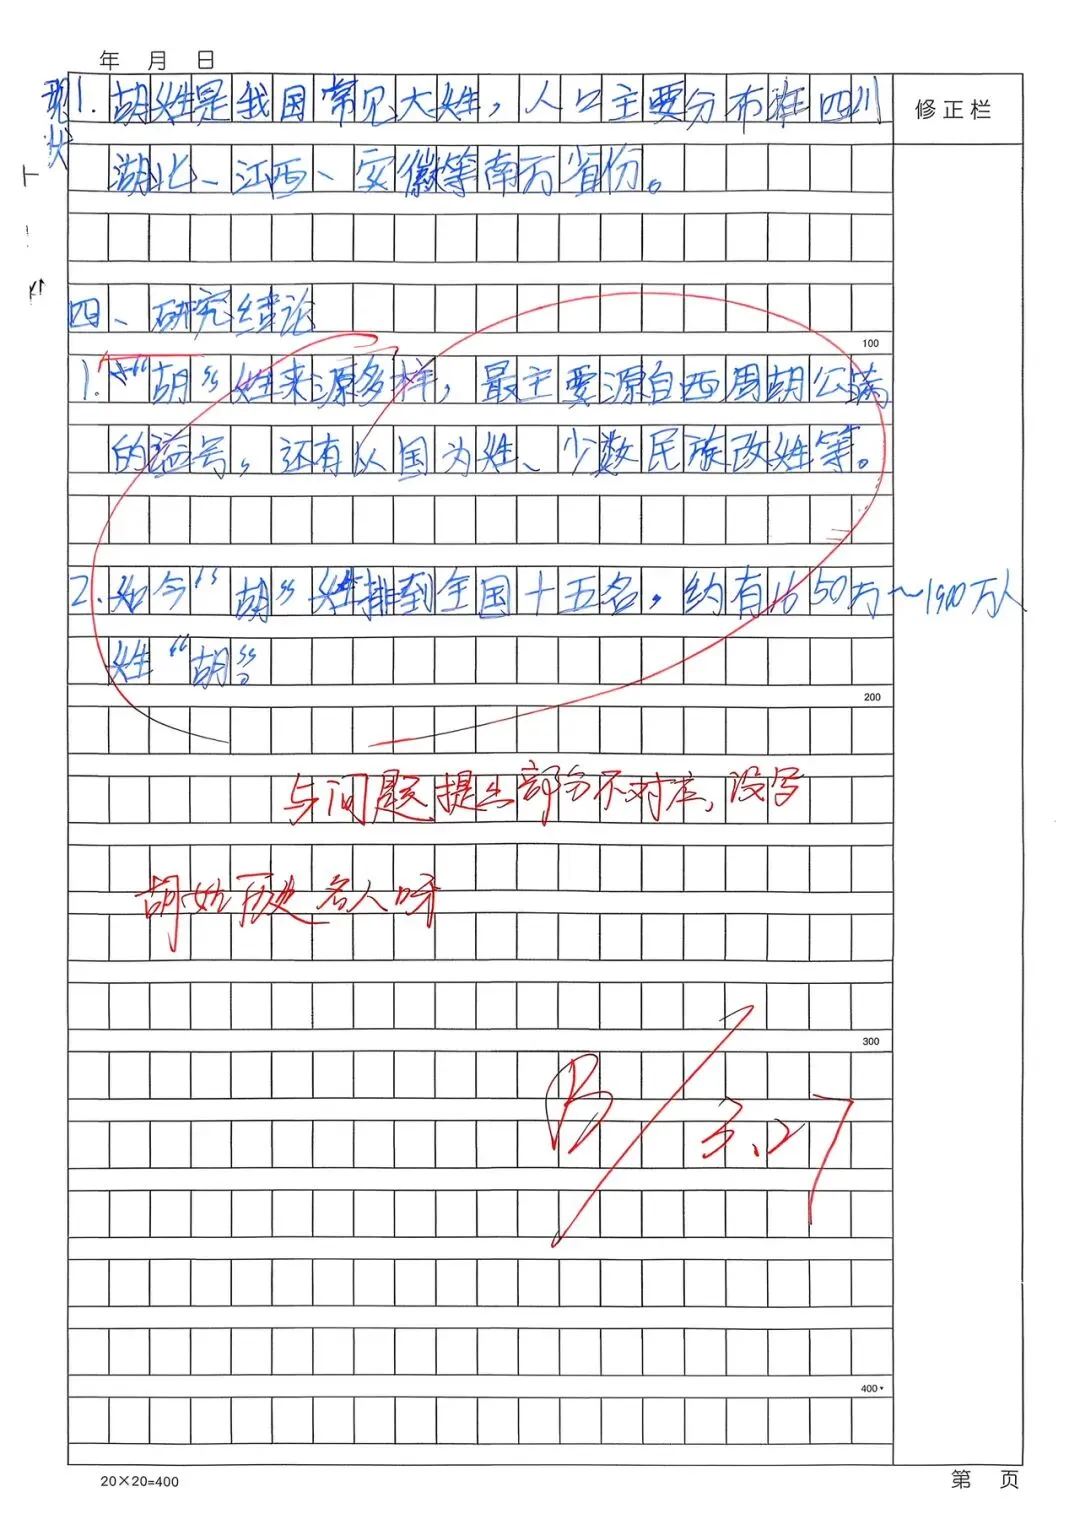 年 月 日
修正栏
现状
1. 胡姓是我国常见大姓，人口主要分布在四川
湖北、江西、安徽等南方省份。
四、研究结论
100
1. “胡”姓来源多样，最主要源自西周胡公满
的谥号，还有以国为姓、少数民族改姓等。
2. 如今“胡”姓排到全国十五名，约有1650万～1900万人
姓“胡”。
200
与问题提出部分不对应，没写
胡姓历史名人呀
300
B/3.27
400
20×20=400
第 页